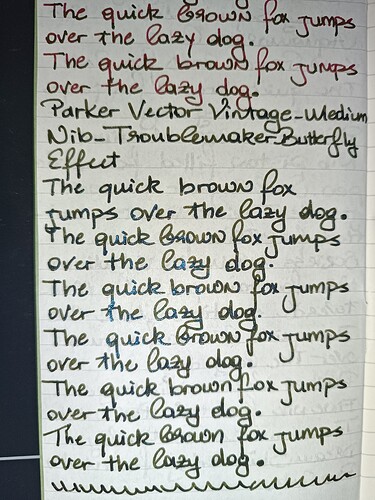 The quick brown fox jumps
over the lazy dog.
The quick brown fox jumps
over the lazy dog.
Parker Vector Vintage-Medium
Nib-Troublemaker-Butterfly
Effect
The quick brown fox
jumps over the lazy dog.
The quick brown fox jumps
over the lazy dog.
The quick brown fox jumps
over the lazy dog.
The quick brown fox jumps
over the lazy dog.
The quick brown fox jumps
over the lazy dog.
The quick brown fox jumps
over the lazy dog.